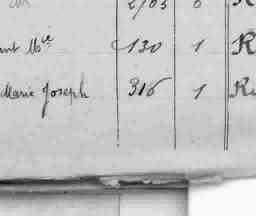 2705 6
ant Mie 130 1 R
Marie Joseph 316 1 Re